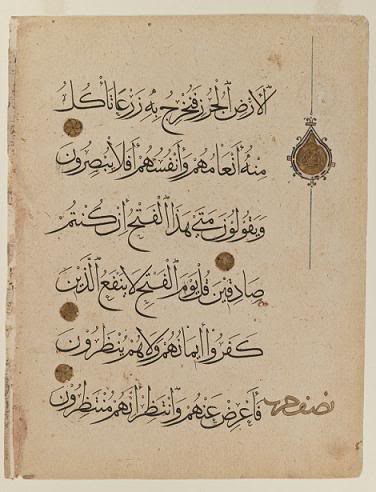 الأرض الجرز فنخرج به زرعا تأكل
منه أنعامهم وأنفسهم أفلا يبصرون
ويقولون متى هذا الفتح إن كنتم
صادقين قل يوم الفتح لا ينفع الذين
كفروا إيمانهم ولا هم ينظرون
فأعرض عنهم وانتظر إنهم منتظرون
نصف حزب